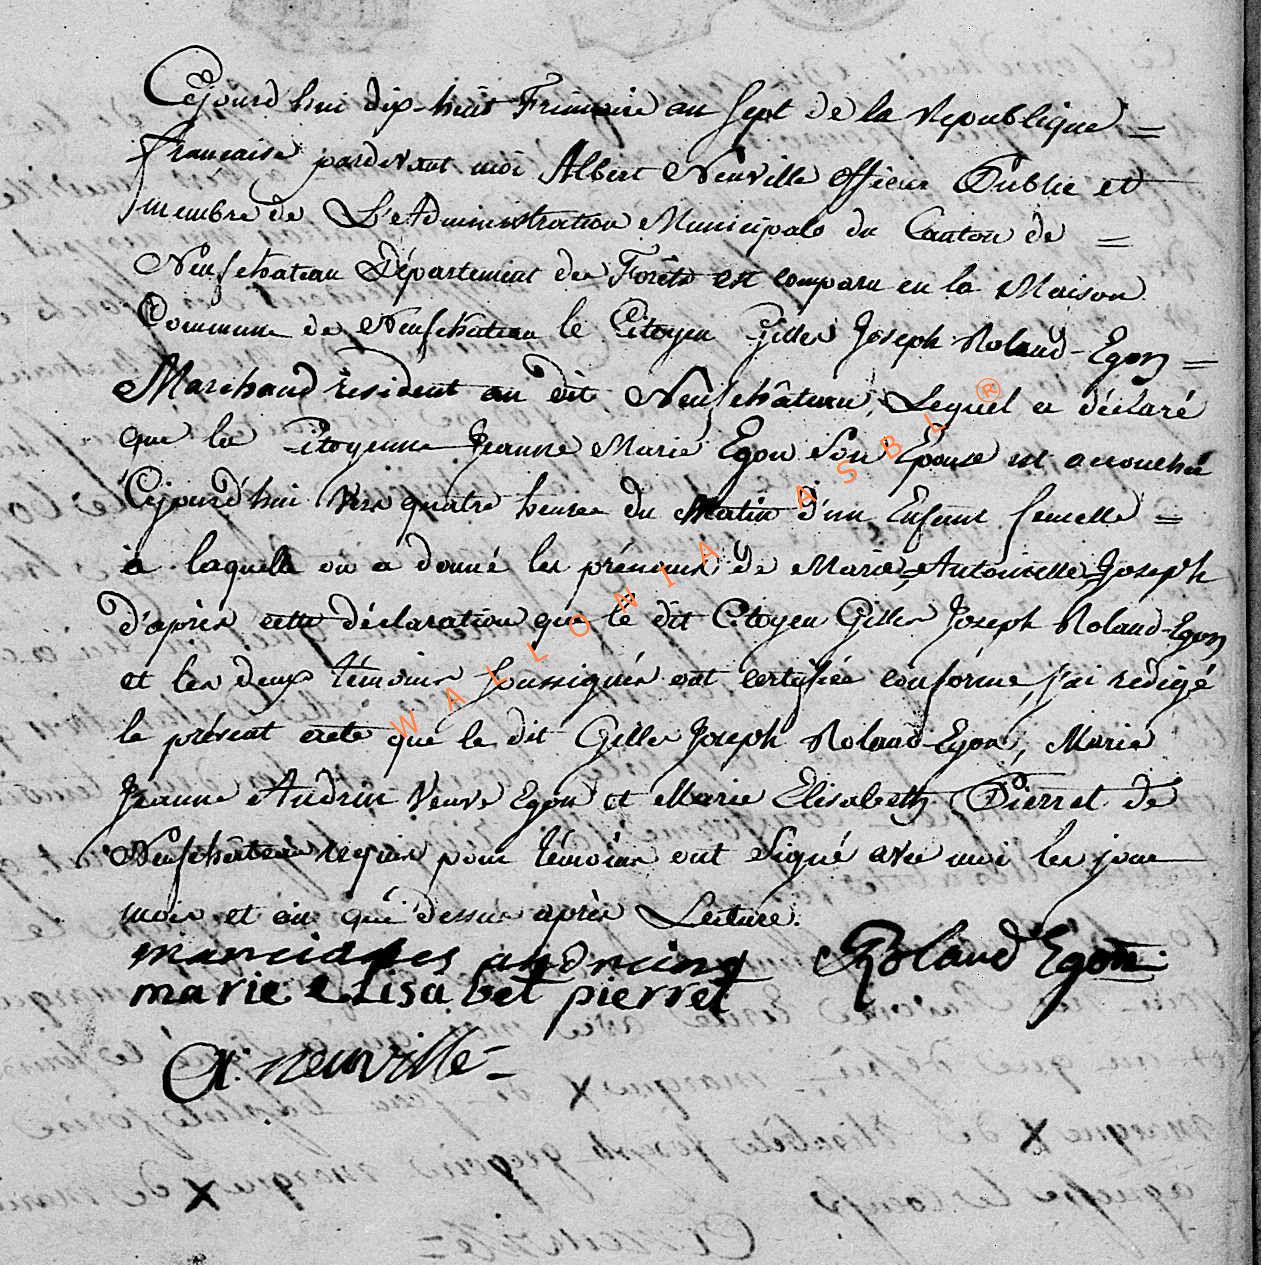 Cejourd'hui dix-huit Frimaire an Sept de la République =
française pardevant moi Albert Neuville officier Public et
membre de L'Administration Municipale du Canton de =
Neufchateau Département des Forêts est comparu en la Maison
Commune de Neufchateau le Citoyen Gilles Joseph Roland-Egon =
Marchand résident au dit Neufchâteau, Lequel a déclaré
que la Citoyenne Jeanne Marie Egon Son Epouse est accouchée
Cejourd'hui vers quatre heures du Matin d'un Enfant femelle =
à laquelle on a donné les prénoms de Marie-Antoinette-Joseph
d'après cette déclaration que le dit Citoyen Gilles Joseph Roland-Egon
et les deux témoins soussignés ont certifiée conforme, j'ai rédigé
le présent acte que le dit Gilles Joseph Roland-Egon, Marie
Jeanne Andrin Veuve Egon et Marie Elisabeth Pierret de
Neufchâteau requis pour témoins ont Signé avec moi les jour
mois et an que dessus après Lecture.
Roland Egon
marie elisabet pierret
A: neuville =
WALLONIA ASBL ®